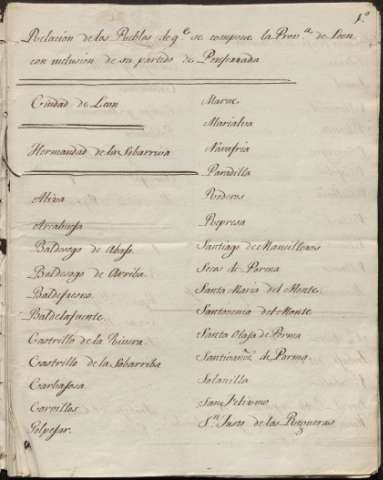 1.º
Relacion de los Pueblos de q.e se compone la Prov.a de Leon
con inclusion de su partido de Ponferrada
Ciudad de Leon
Hermandad de la Sobarriva
Alixa
Arcahueja
Baldesogo de Abajo
Baldesogo de Arriba
Baldefuente
Castrillo de la Rivera
Castrillo de la Sobarriba
Carbajosa
Corvillos
Golpejar
Marne
Marialva
Navafria
Paradilla
Represa
Santiago de
Secos de Porma
Santa Maria del Monte
Santovenia del Monte
Santa Olaja de Porma
Solanilla
San Felismo
S.n Justo de las Regueras